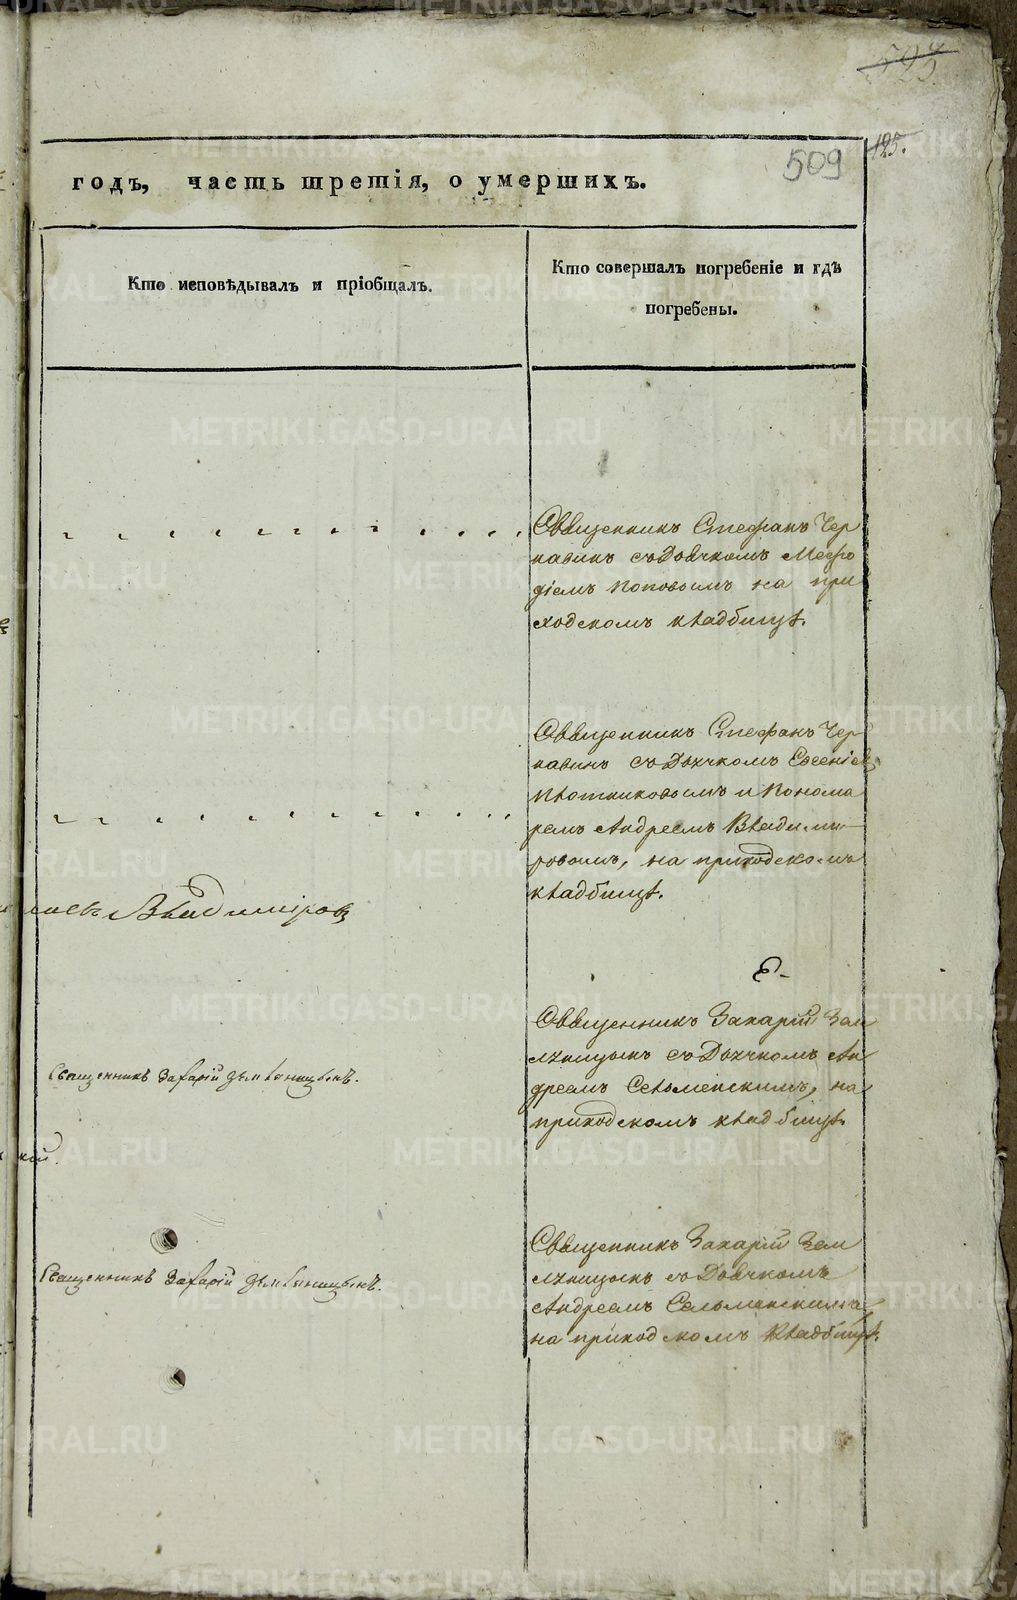 523
125.
509
годъ, часть третія, о умершихъ.
Кто исповѣдывалъ и пріобщалъ.
Кто совершалъ погребеніе и гдѣ
погребены.
Священникъ Стефанъ Чер
навинъ съ Дьячкомъ Мефо
діемъ Поповымъ на при
ходскомъ кладбищѣ.
Священникъ Стефанъ Чер
навинъ съ Дьячкомъ Евгеніем
Плотниковымъ и Понома
ремъ Андреемъ Владими
ровымъ, на приходскомъ
кладбищѣ.
Владиміров
Священникъ Захарій Зем
ляницынъ съ Дьячкомъ Ан
дреемъ Сельменскимъ, на
приходскомъ кладбищѣ.
Священникъ Захарій Земляницынъ.
кій.
Священникъ Захарій Зем
ляницынъ съ Дьячкомъ
Андреемъ Сельменскимъ
на приходскомъ Кладбищѣ.
Священникъ Захарій Земляницынъ.
METRIKI.GASO-URAL.RU